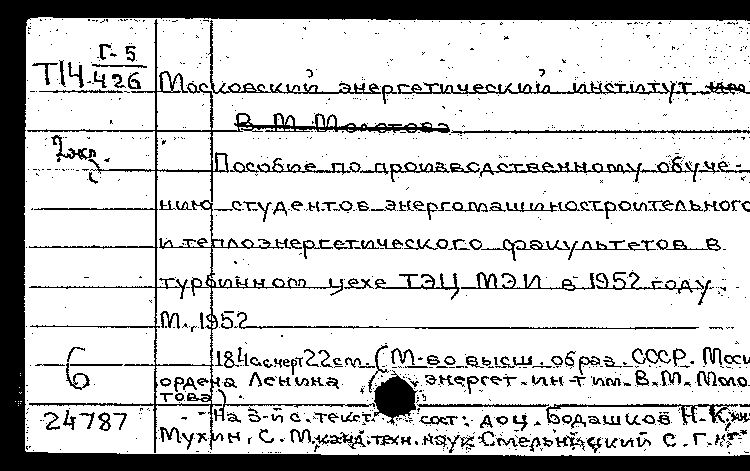 Г-5
Т14 426
Московский энергетический институт
В. М. Молотова
2 экз.
Пособие по производственному обуче-
нию студентов энергомашиностроительного
и теплоэнергетического факультетов в
турбинном цехе ТЭЦ МЭИ в 1952 году.
М., 1952
184 с. с черт 22 см. (М-во высш. образ. СССР. Моск
6
ордена Ленина энергет. ин-т им. В. М. Моло
това).
24787
На 3-й с. текст: сост: доц. Бодашков Н. К.
Мухин, С. М, канд. техн. наук Смельницкий С. Г.